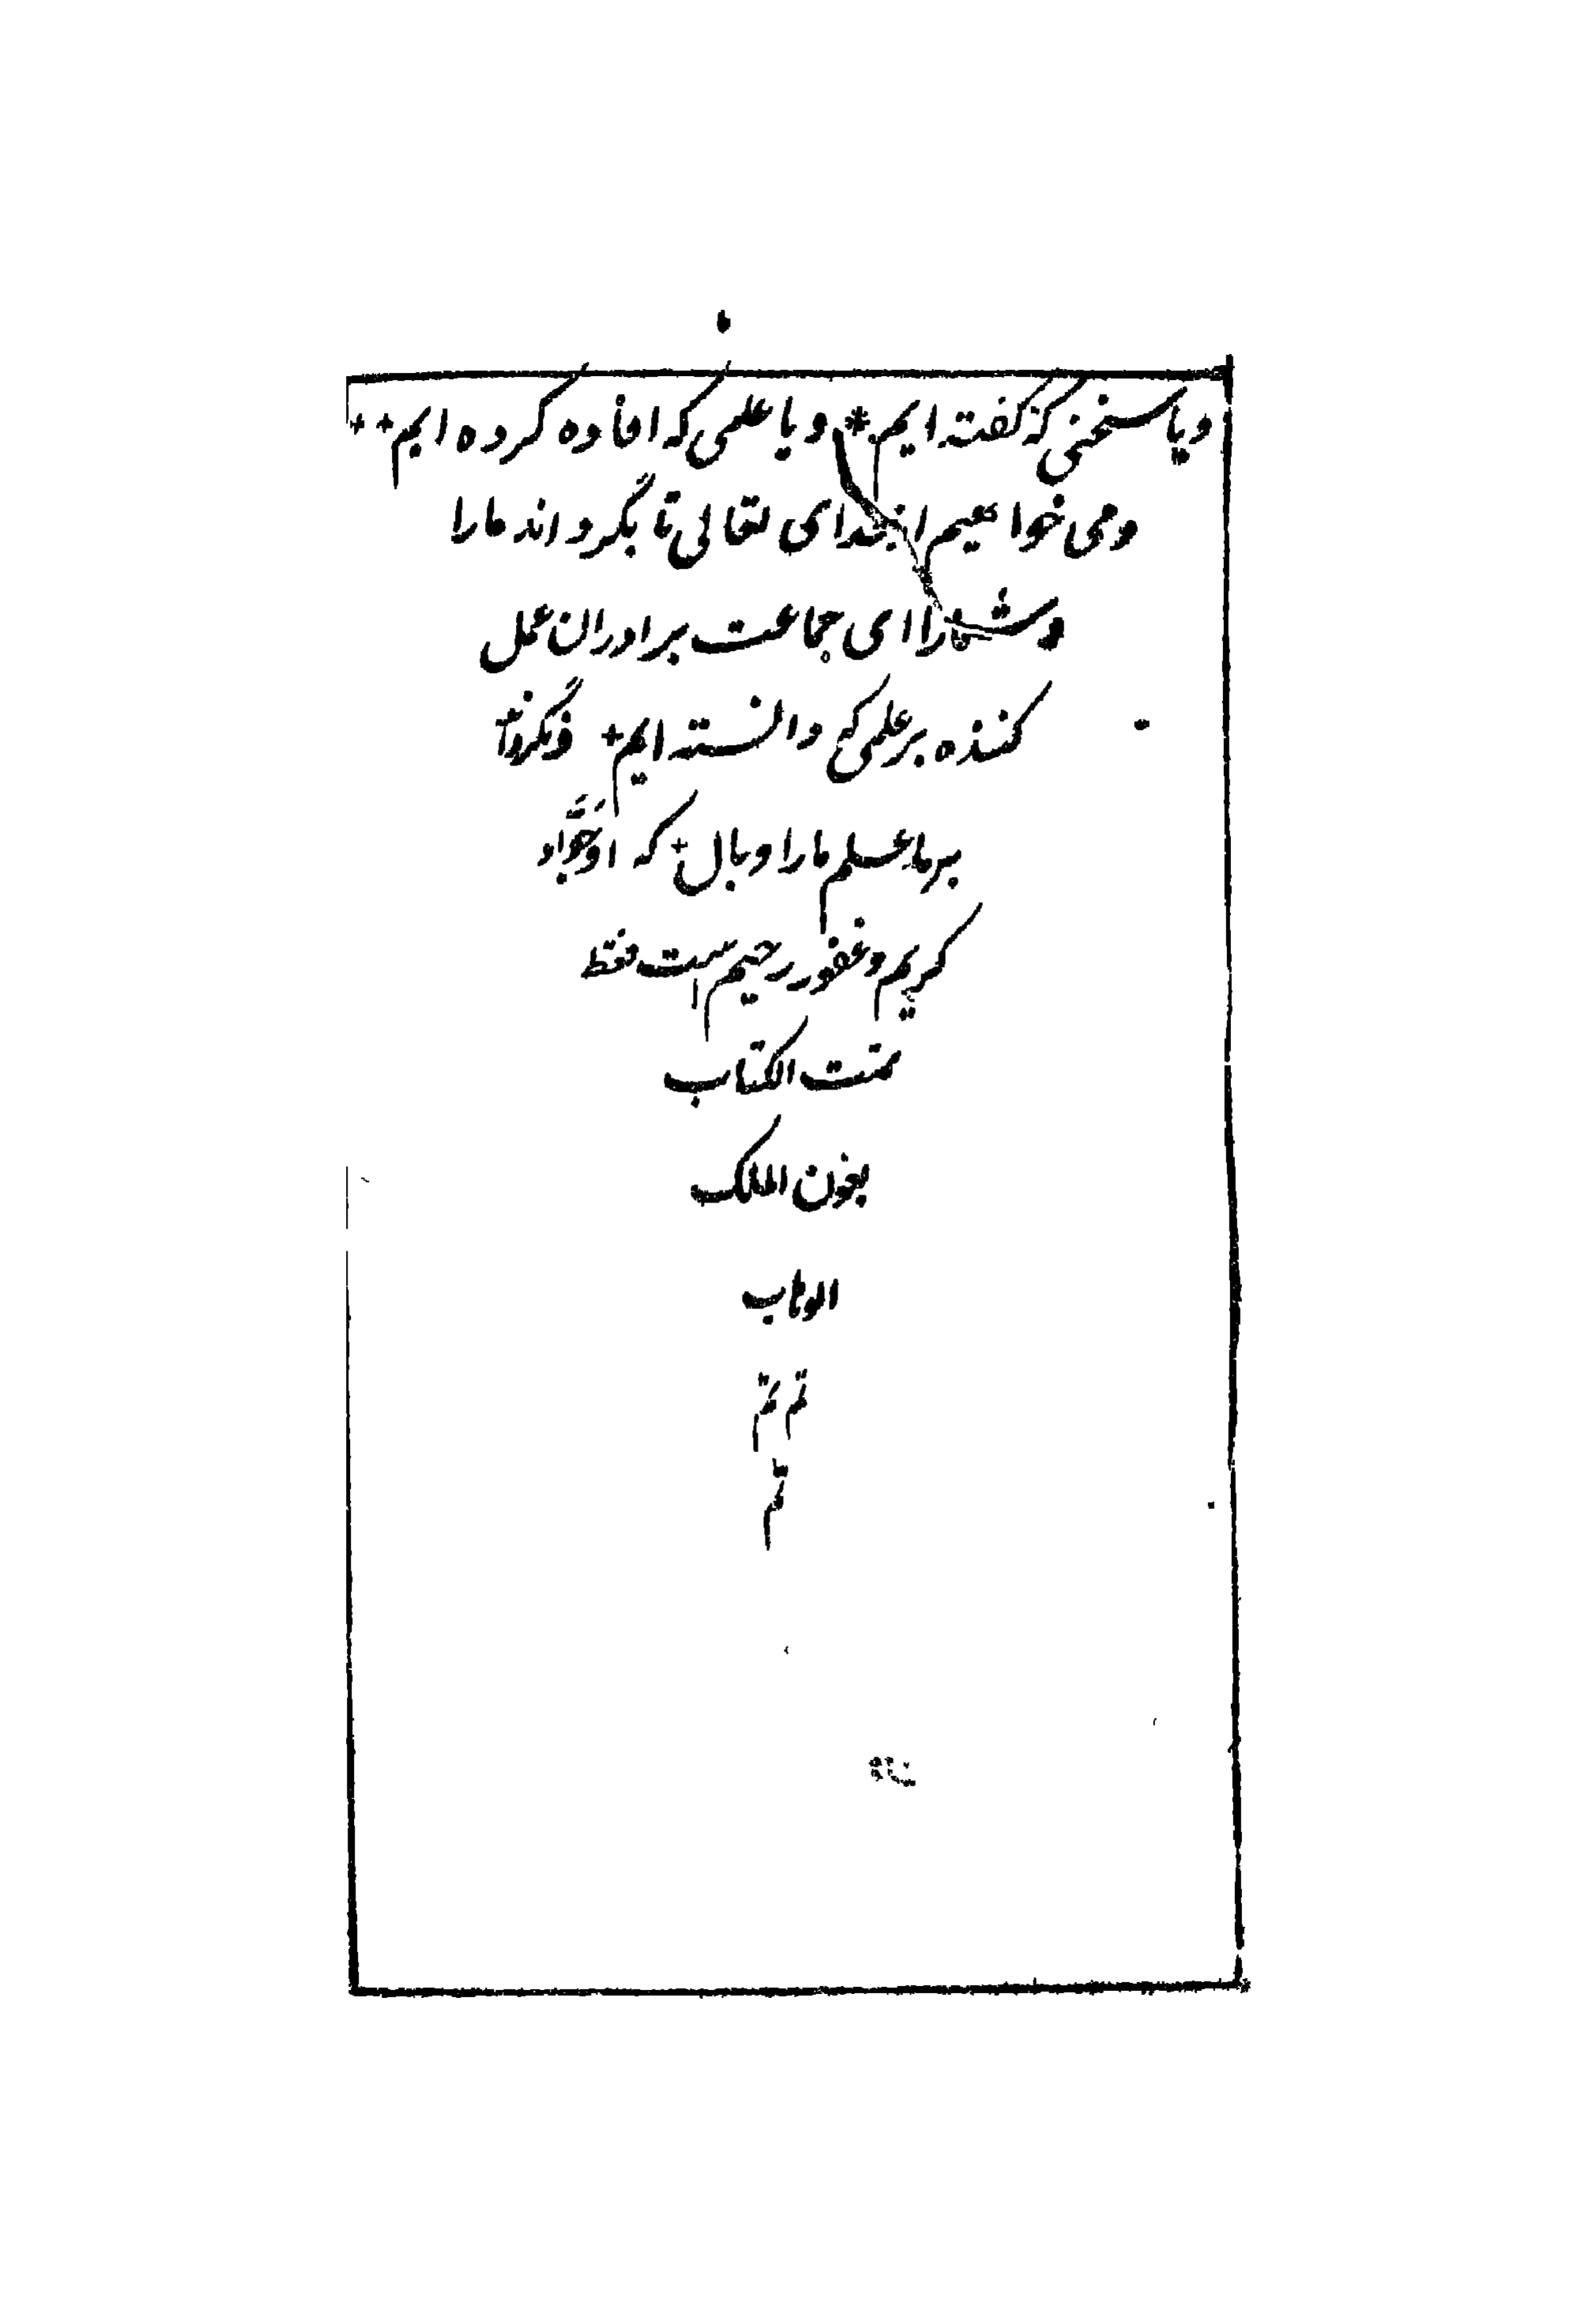 ویا سخنی که گفته ایم * و یا علمی که افاده کرده ایم + +
و می خواهیم از خدای تعالی تا بگرداند ما را
و شما را ای جماعت برادران عمل
کننده بر علمی که دانسته ایم + و نگرداند
بر ما علم ما را وبال + که او جَوَّاد
کریم و غفور رحیم است فقط
تمت الکتاب
بعون الملک
الوهاب
تم تم
تم